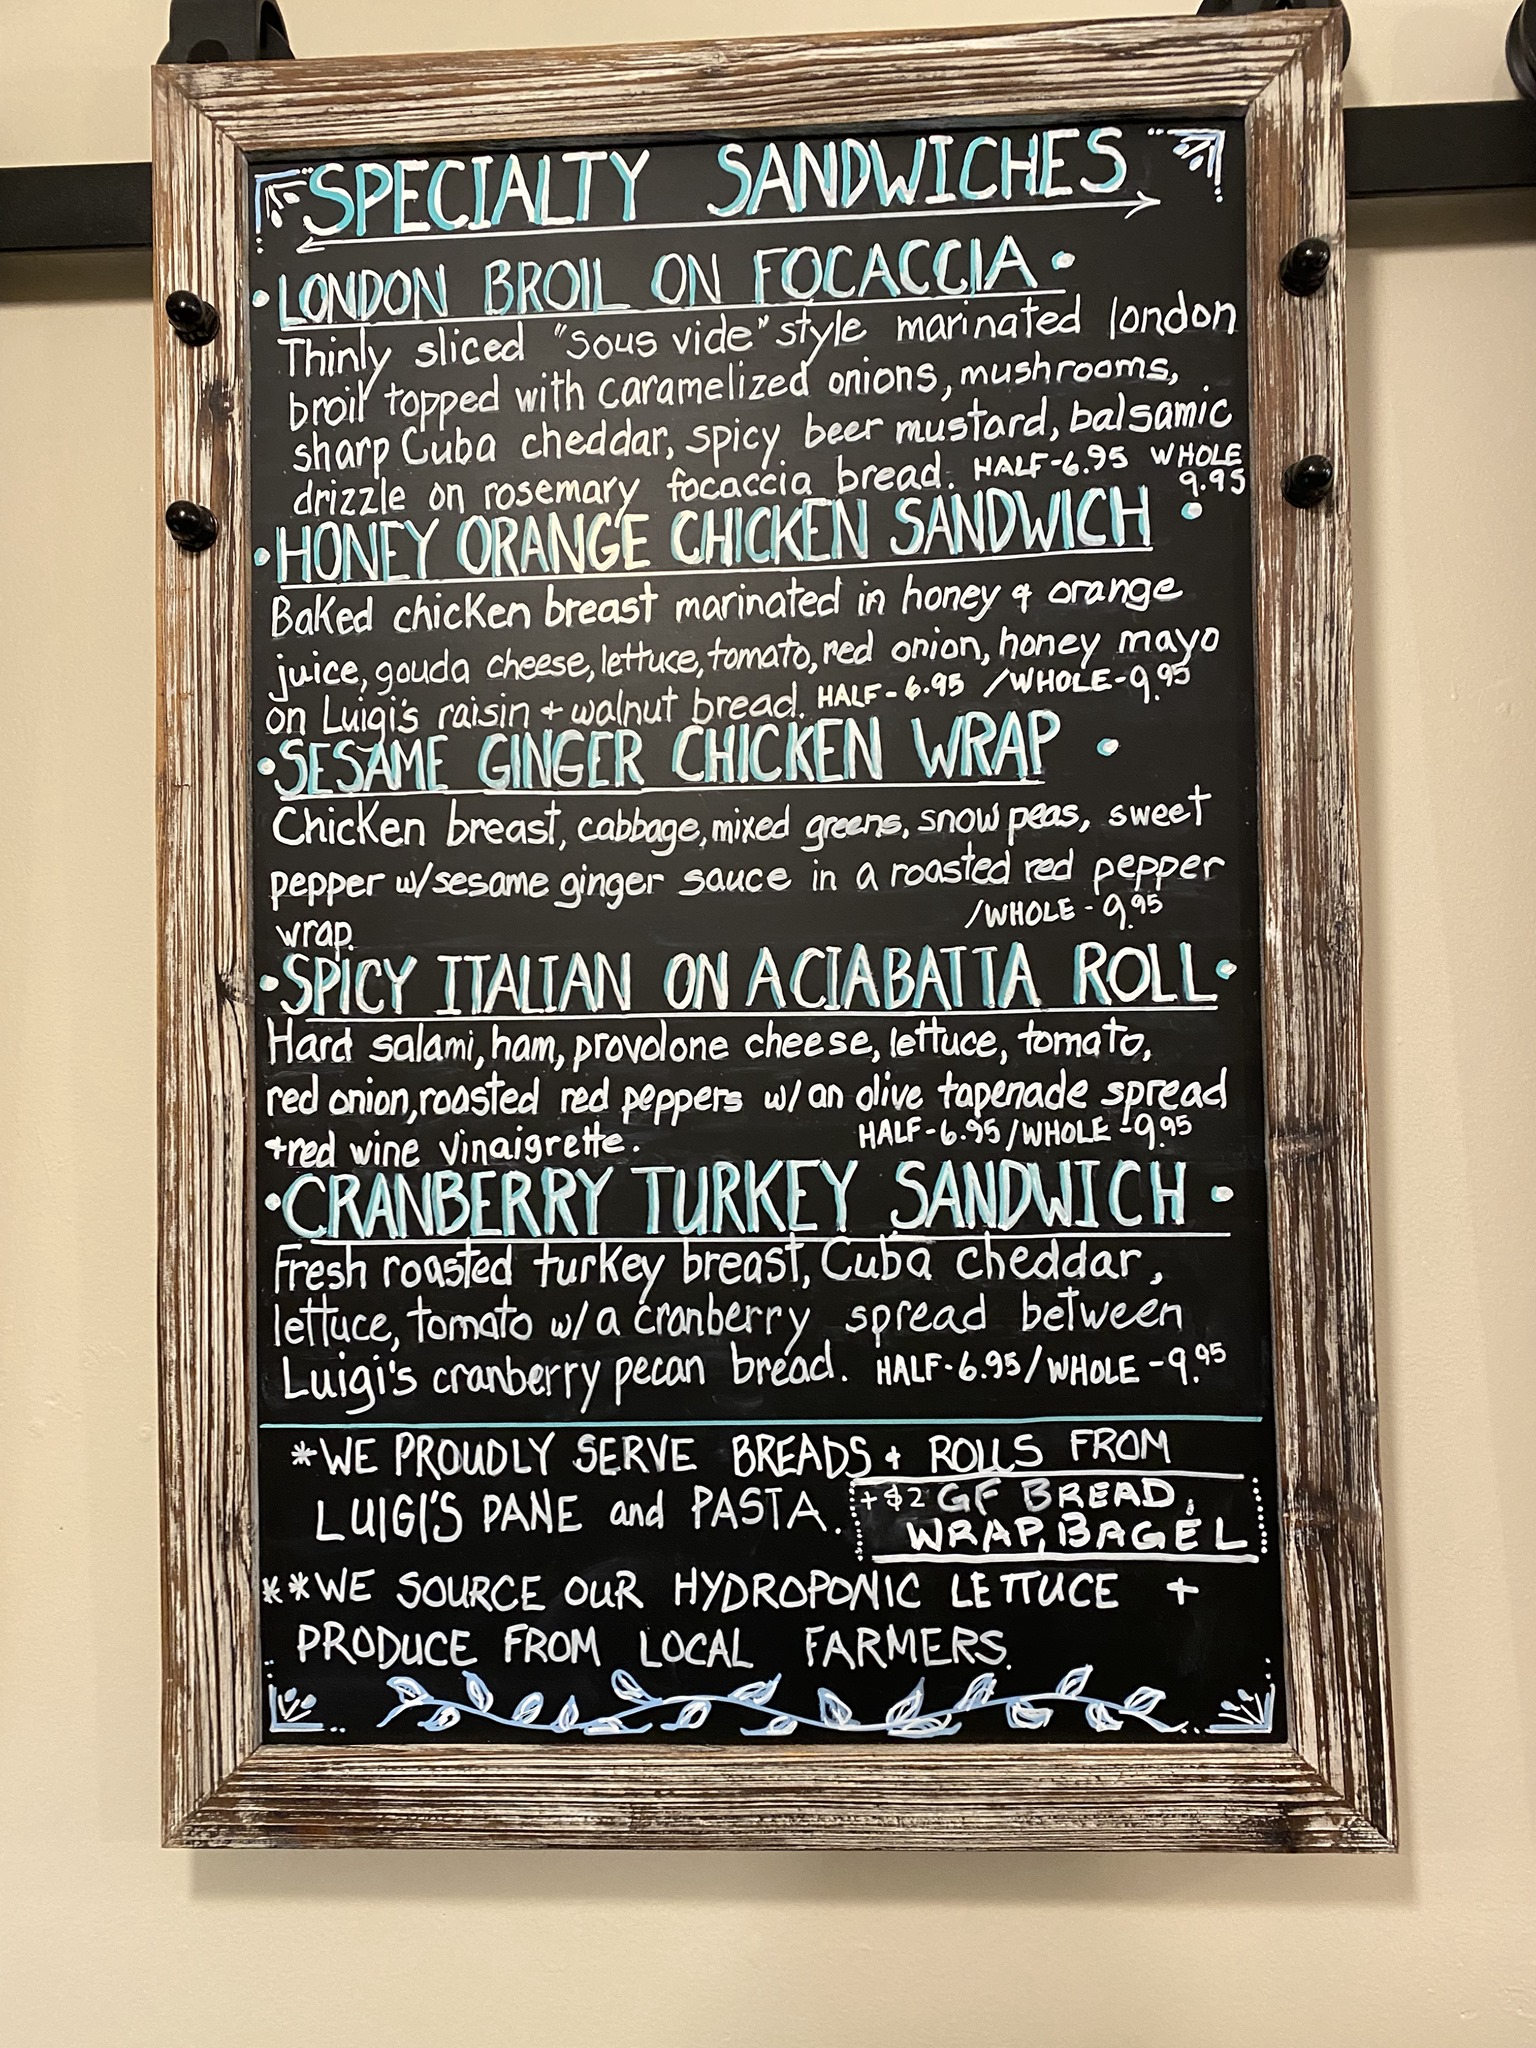 SPECIALTY SANDWICHES
• LONDON BROIL ON FOCACCIA •
Thinly sliced "sous vide" style marinated london
broil topped with caramelized onions, mushrooms,
sharp Cuba cheddar, spicy beer mustard, balsamic
drizzle on rosemary focaccia bread. HALF-6.95 WHOLE
9.95
• HONEY ORANGE CHICKEN SANDWICH •
Baked chicken breast marinated in honey & orange
juice, gouda cheese, lettuce, tomato, red onion, honey mayo
on Luigi's raisin + walnut bread. HALF-6.95 /WHOLE-9.95
• SESAME GINGER CHICKEN WRAP •
Chicken breast, cabbage, mixed greens, snow peas, sweet
pepper w/sesame ginger sauce in a roasted red pepper
wrap. /WHOLE-9.95
• SPICY ITALIAN ON A CIABATTA ROLL •
Hard salami, ham, provolone cheese, lettuce, tomato,
red onion, roasted red peppers w/ an olive tapenade spread
+ red wine vinaigrette. HALF-6.95/WHOLE-9.95
• CRANBERRY TURKEY SANDWICH •
Fresh roasted turkey breast, Cuba cheddar,
lettuce, tomato w/ a cranberry spread between
Luigi's cranberry pecan bread. HALF-6.95/WHOLE-9.95
*WE PROUDLY SERVE BREADS + ROLLS FROM
LUIGI'S PANE and PASTA.
+$2 GF BREAD,
WRAP, BAGEL
**WE SOURCE OUR HYDROPONIC LETTUCE +
PRODUCE FROM LOCAL FARMERS.